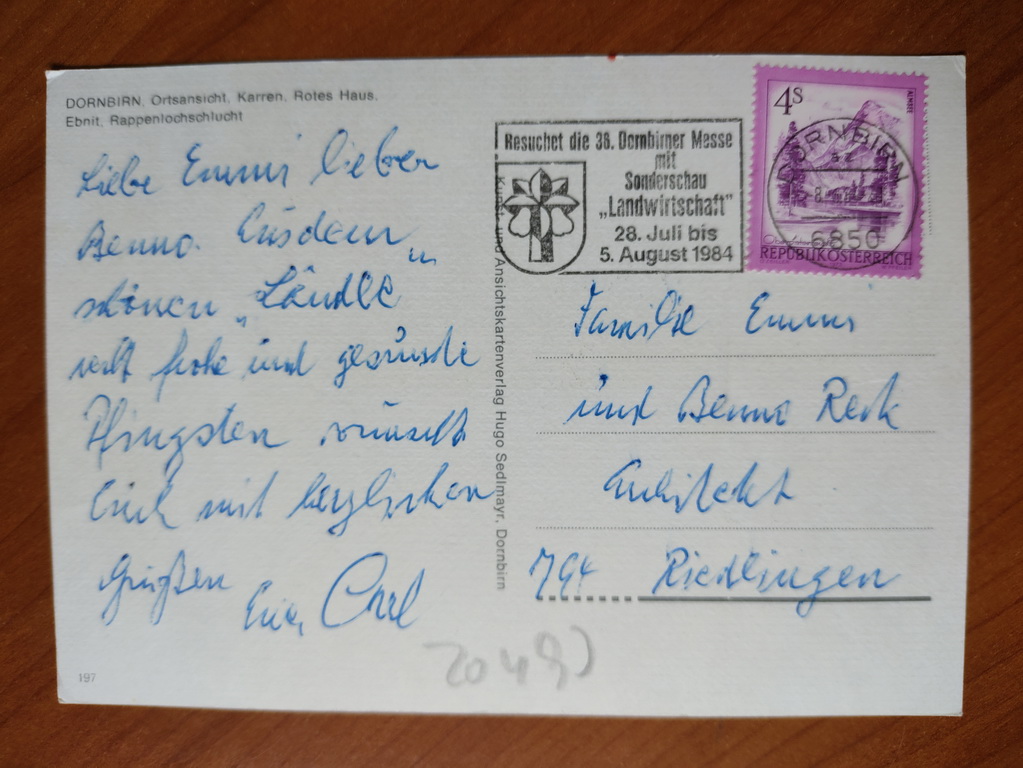 DORNBIRN, Ortsansicht, Karren, Rotes Haus,
Ebnit, Rappenlochschlucht
Liebe Emmi lieber
Benno. Aus dem
schönen „Ländle“
recht frohe und gesunde
Pfingsten wünscht
Euch mit herzlichen
Grüßen
Euer Carl
197
Kunst- und Ansichtskartenverlag Hugo Sedlmayr, Dornbirn
Besuchet die 36. Dornbirner Messe
mit
Sonderschau
„Landwirtschaft"
28. Juli bis
5. August 1984
4S
ALMSEE
REPUBLIK ÖSTERREICH
DORNBIRN
6850
Familie Emmi
und Benno Reck
Architekt
794 Riedlingen